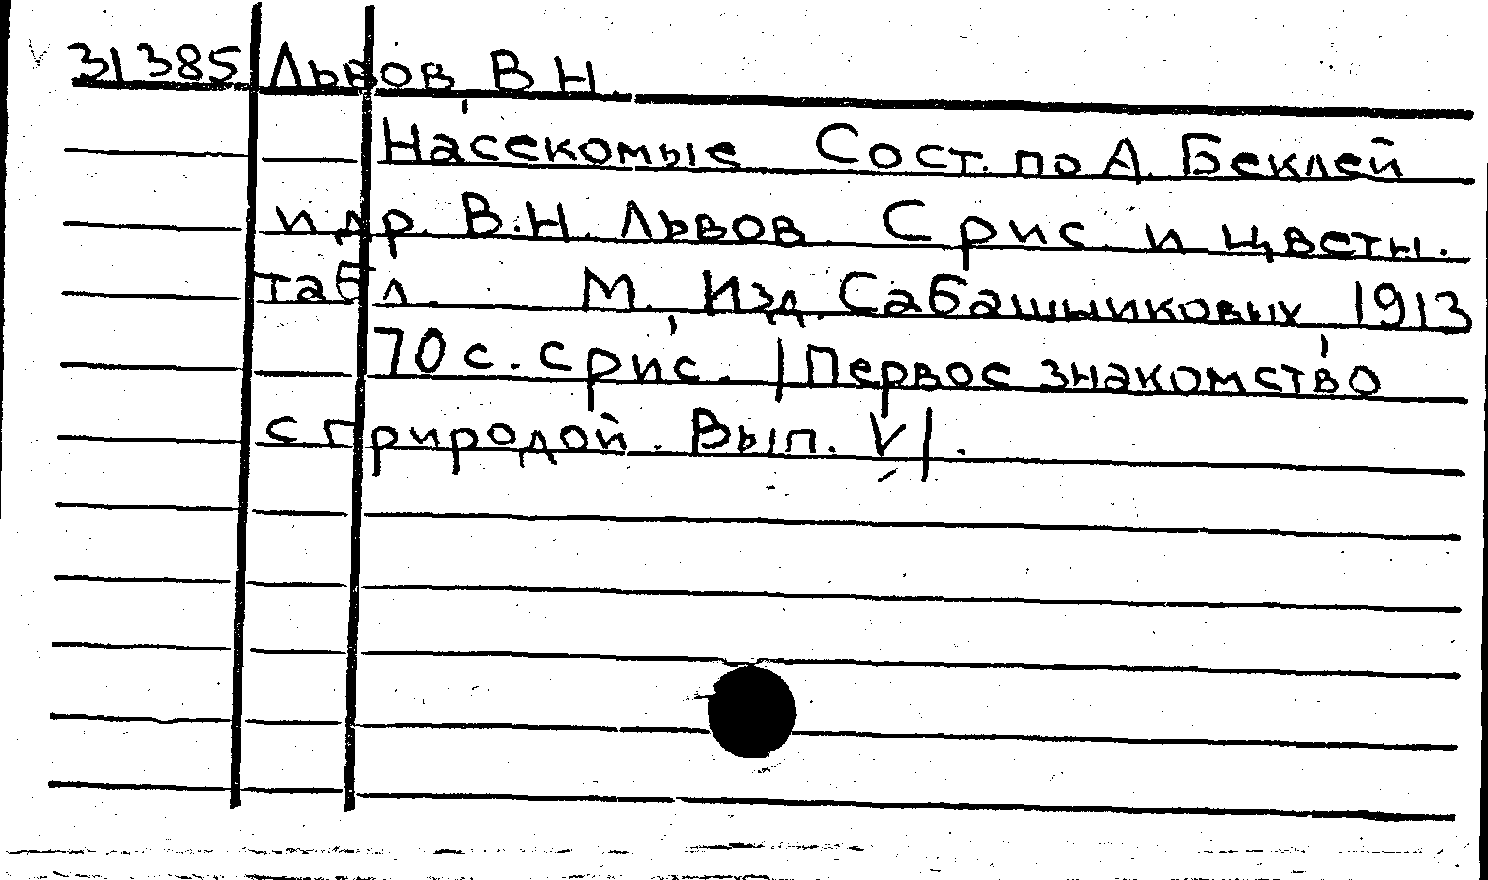 31385 Львов, В. Н.
Насекомые Сост. по А. Беклей
и др. В.Н. Львов. С рис. и цветн.
табл. М. Изд. Сабашниковых 1913
70 с. с рис. /Первое знакомство
с природой. Вып. V/.